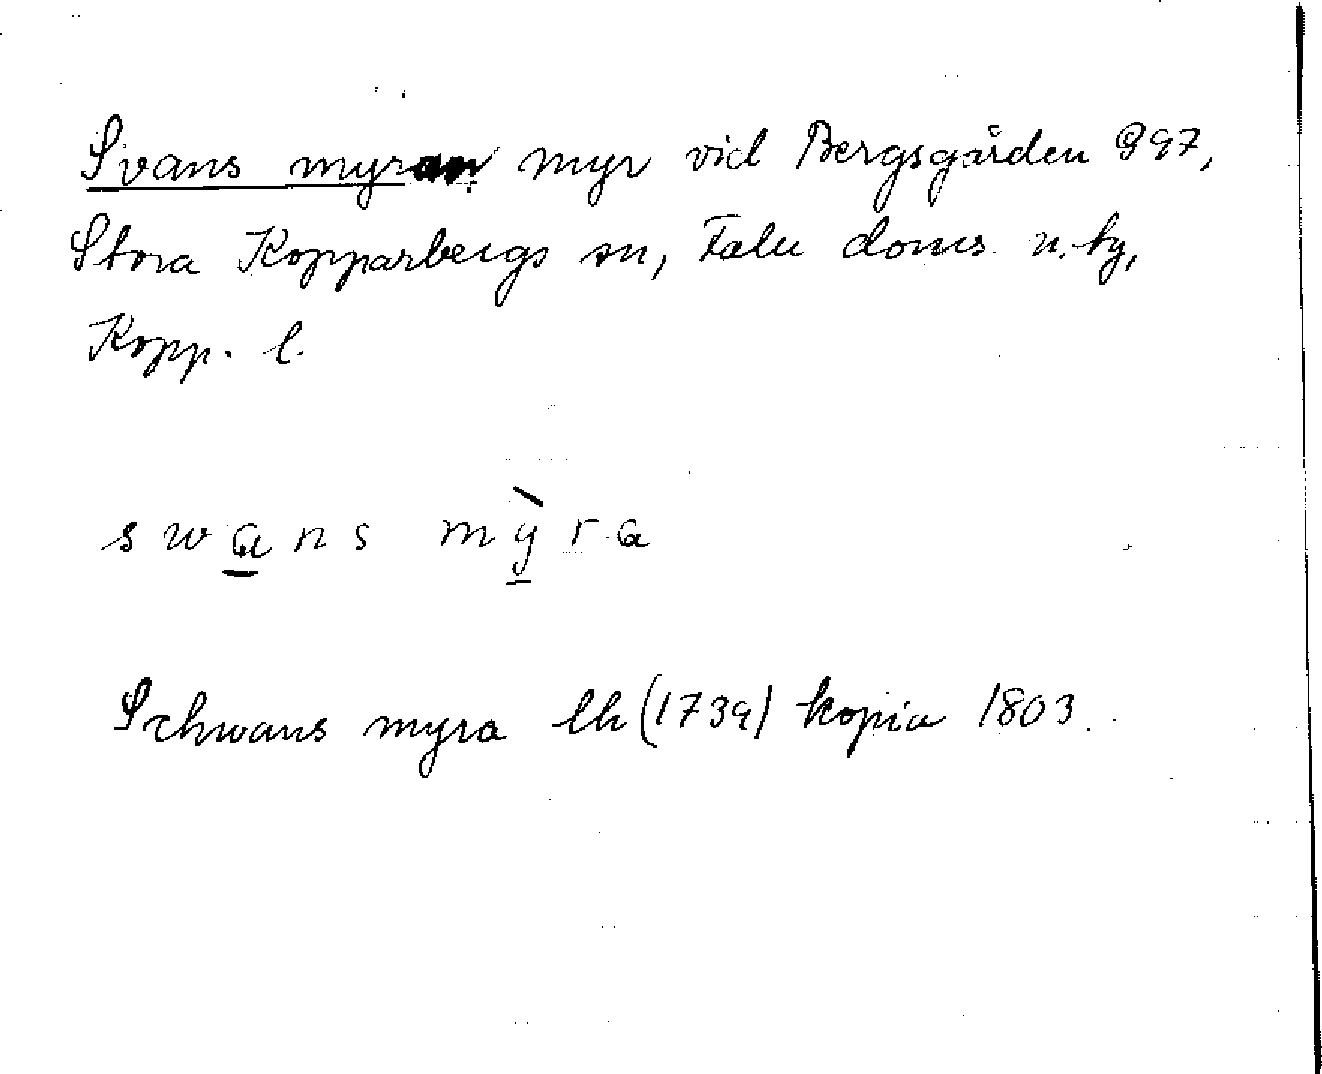 Svans myran myr vid Bergsgården 997,
Stora Kopparbergs sn, Falu doms. n. tg,
Kopp. l.
s w a n s m ỳ r a
Schwans myra lh (1739) kopia 1803.